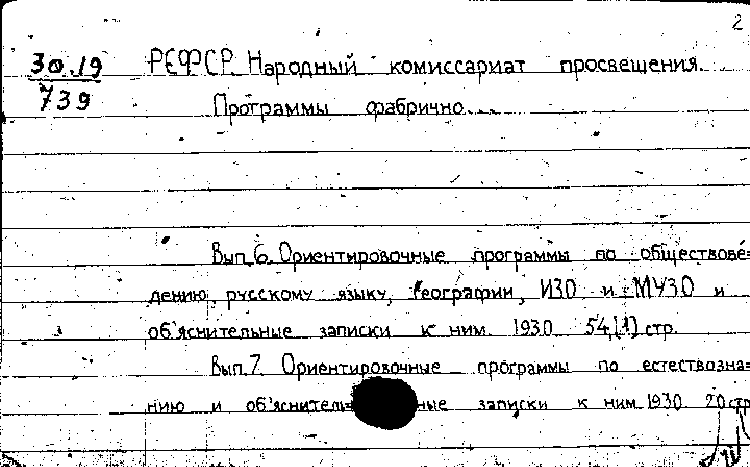 2
30.19 РСФСР. Народный комиссариат просвещения.
739 Программы фабрично...
Вып. 6. Ориентировочные программы по обществове=
дению, русскому языку, географии, ИЗО и МУЗО и
об'яснительные записки к ним. 1930. 54,(1) стр.
Вып. 7. Ориентировочные программы по естествозна=
нию и об'яснительные записки к ним. 1930. 20 стр